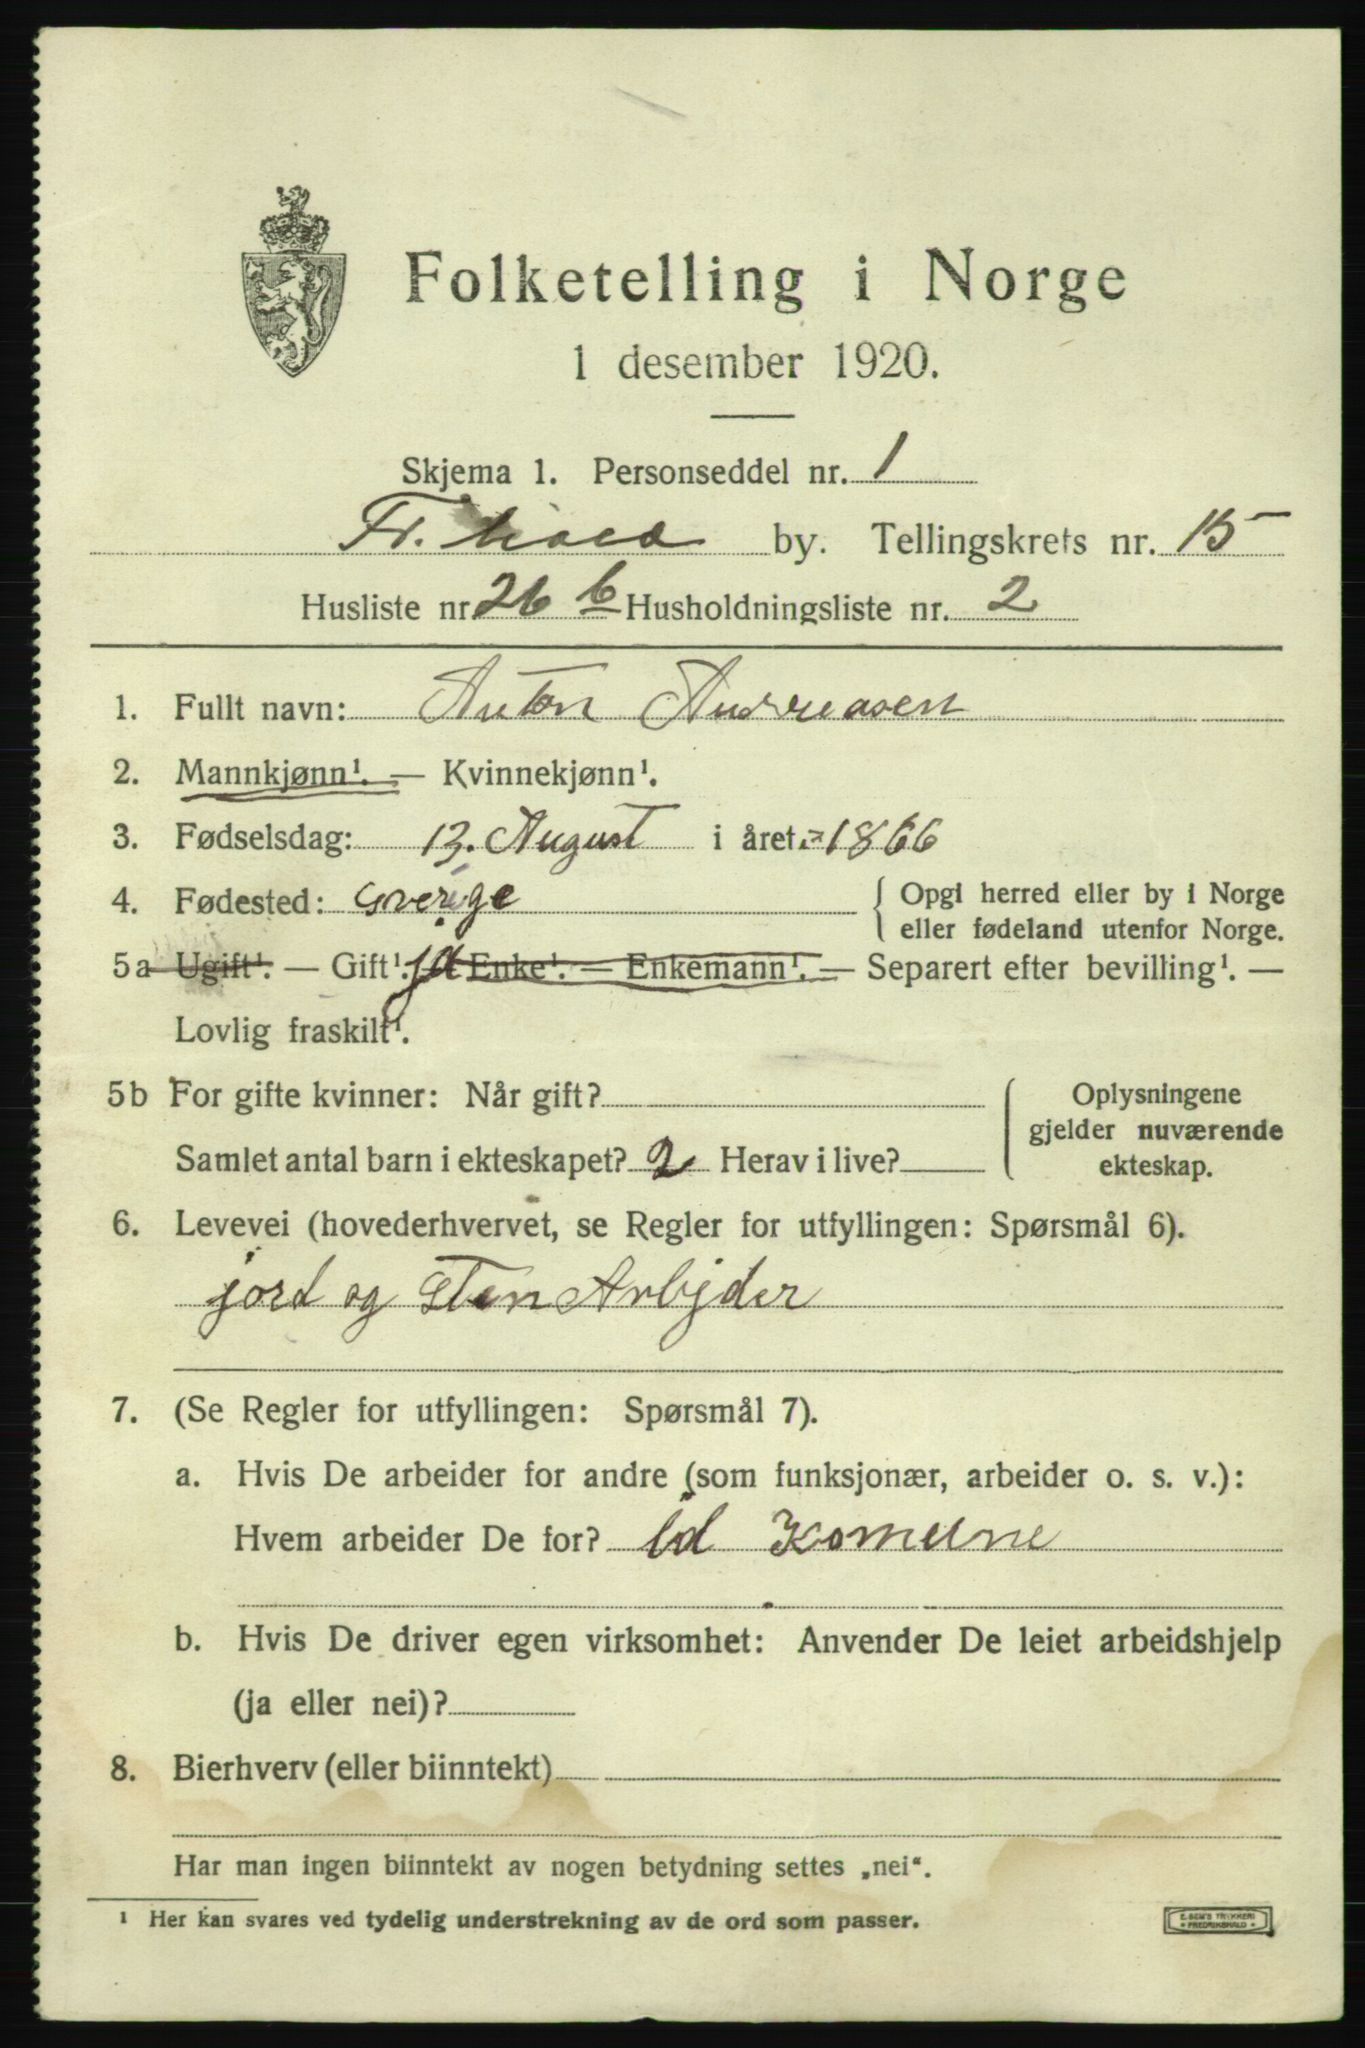 Folketelling i Norge
1 desember 1920.
Skjema 1. Personseddel nr. 1
Fr.hald by. Tellingskrets nr. 15
Husliste nr. 26 b Husholdningsliste nr. 2
1. Fullt navn: Anton Andreasen
2. Mannkjønn¹. — Kvinnekjønn¹.
3. Fødselsdag: 13. August i året: 1866
4. Fødested: Sverige { Opgi herred eller by i Norge
eller fødeland utenfor Norge.
5a Ugift¹. — Gift¹. ja Enke¹. — Enkemann¹. — Separert efter bevilling¹. —
Lovlig fraskilt¹.
5b For gifte kvinner: Når gift?
Oplysningene
gjelder nuværende
ekteskap.
Samlet antal barn i ekteskapet? 2 Herav i live?
6. Levevei (hovederhvervet, se Regler for utfyllingen: Spørsmål 6).
jord og Sten Arbjder
7. (Se Regler for utfyllingen: Spørsmål 7).
a. Hvis De arbeider for andre (som funksjonær, arbeider o. s. v.):
Hvem arbeider De for? Id Komune
b. Hvis De driver egen virksomhet: Anvender De leiet arbeidshjelp
(ja eller nei)?
8. Bierhverv (eller biinntekt)
Har man ingen biinntekt av nogen betydning settes „nei“.
¹ Her kan svares ved tydelig understrekning av de ord som passer.
E. SEM'S TRYKKERI
* FREDRIKSHALD *